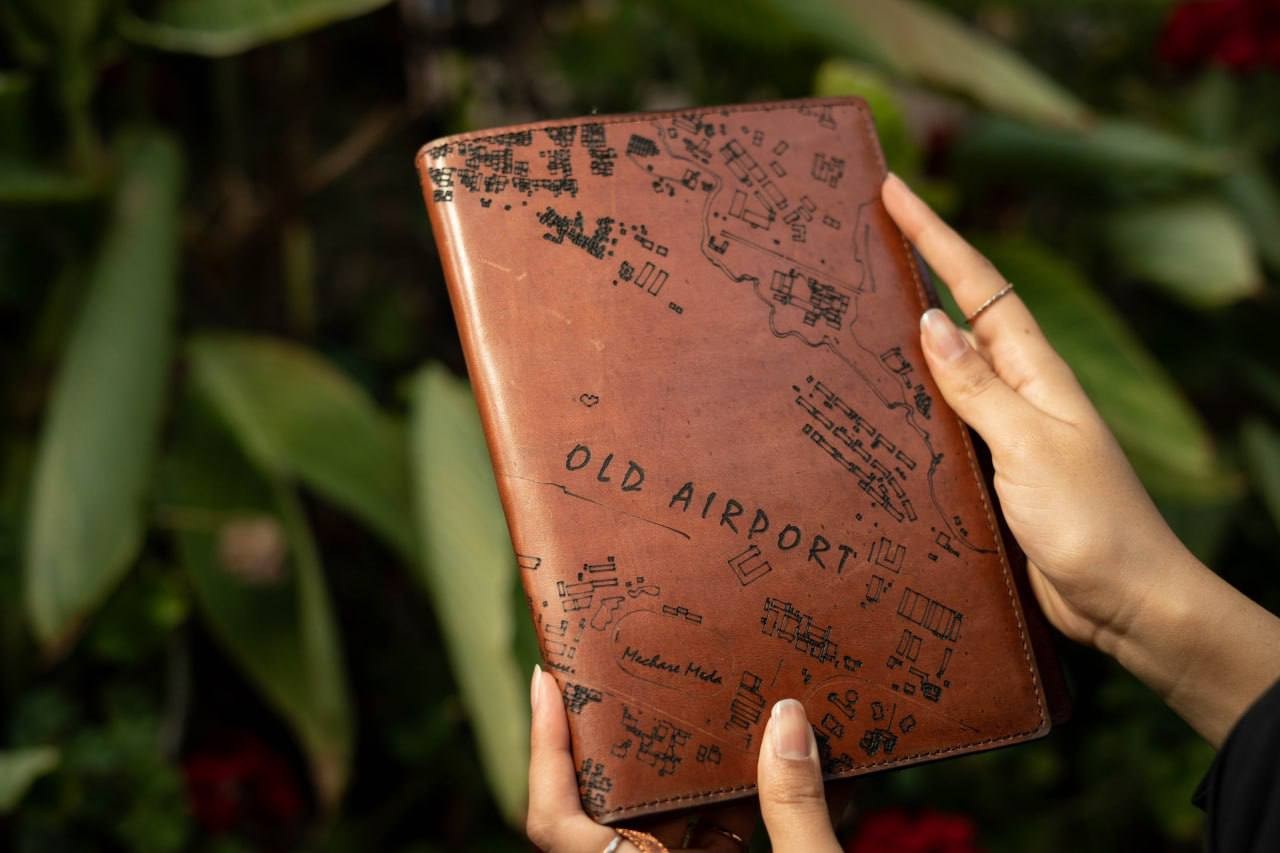 OLD AIRPORT
Mechare Meda